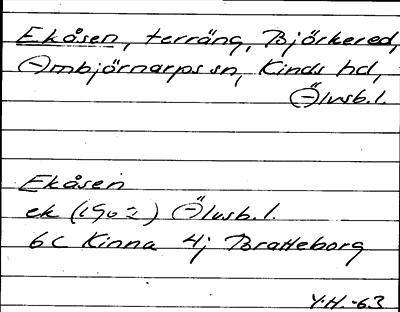 Ekåsen, terräng, Björkered,
Ambjörnarps sn, Kinds hd,
Älvsb. l.
Ekåsen
ek (1902) Älvsb. l.
6C Kinna 4j Bratteborg
Y.H. -63